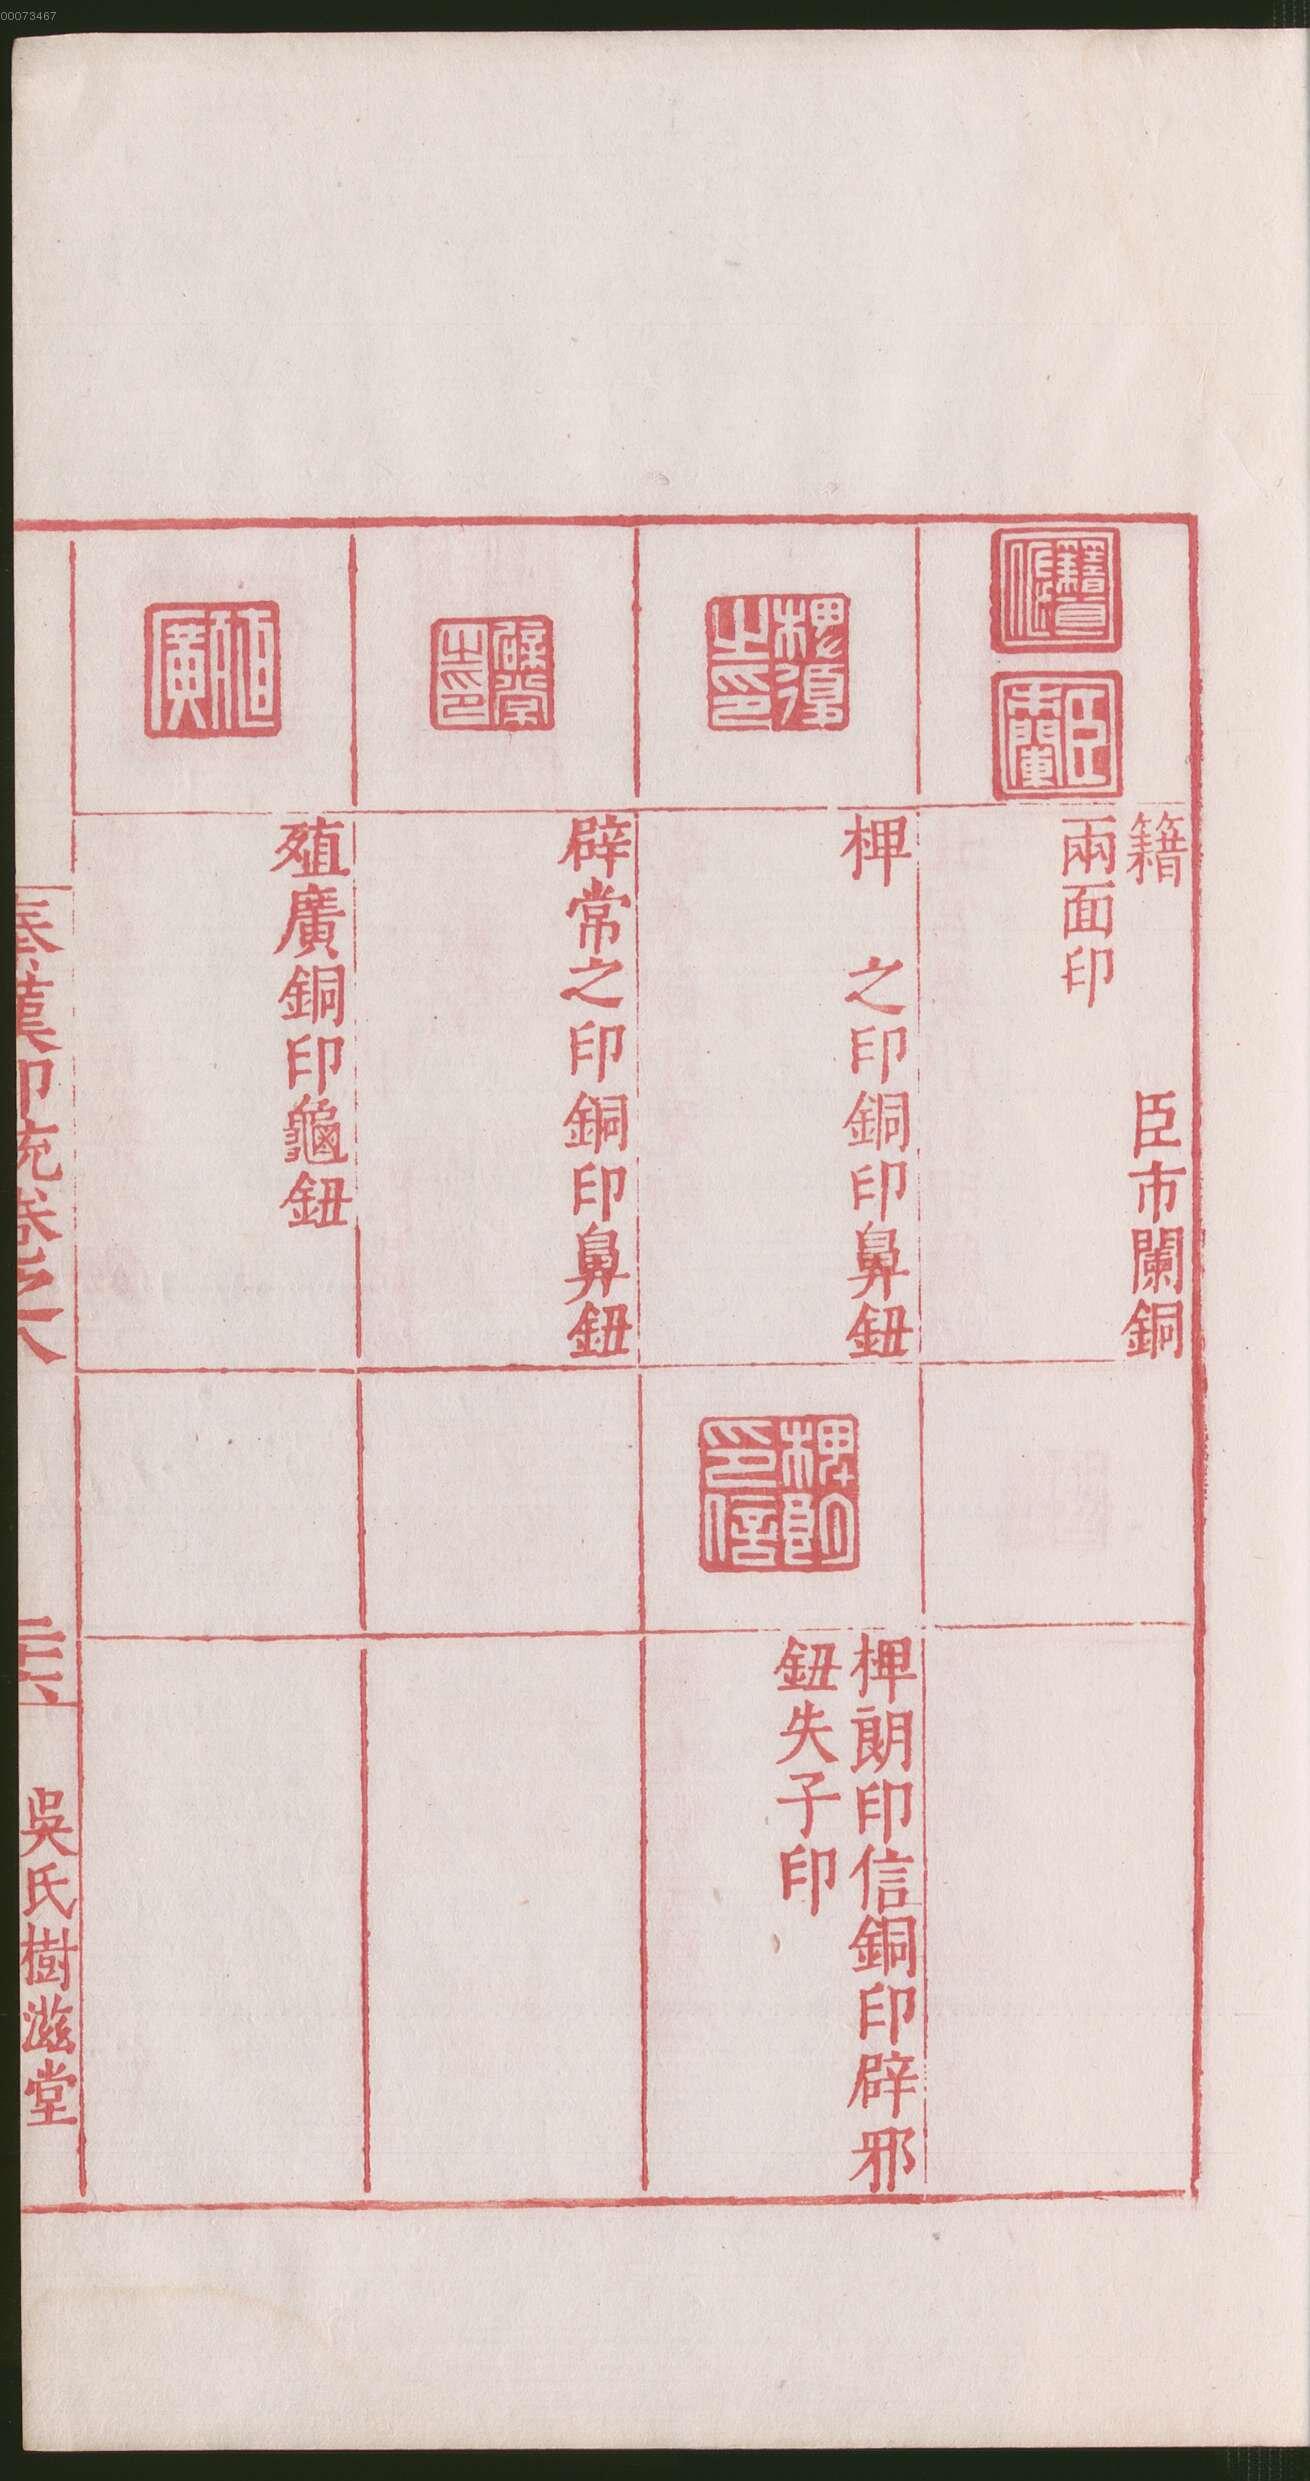 00073467
籍　　　臣市闌銅
兩面印
椑　之印銅印鼻鈕
椑朗印信銅印辟邪
鈕失子印
辟常之印銅印鼻鈕
殖廣銅印龜鈕
秦漢印統卷之八
吳氏樹滋堂